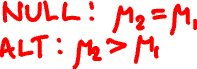 NULL: μ₂=μ₁
ALT: μ₂>μ₁